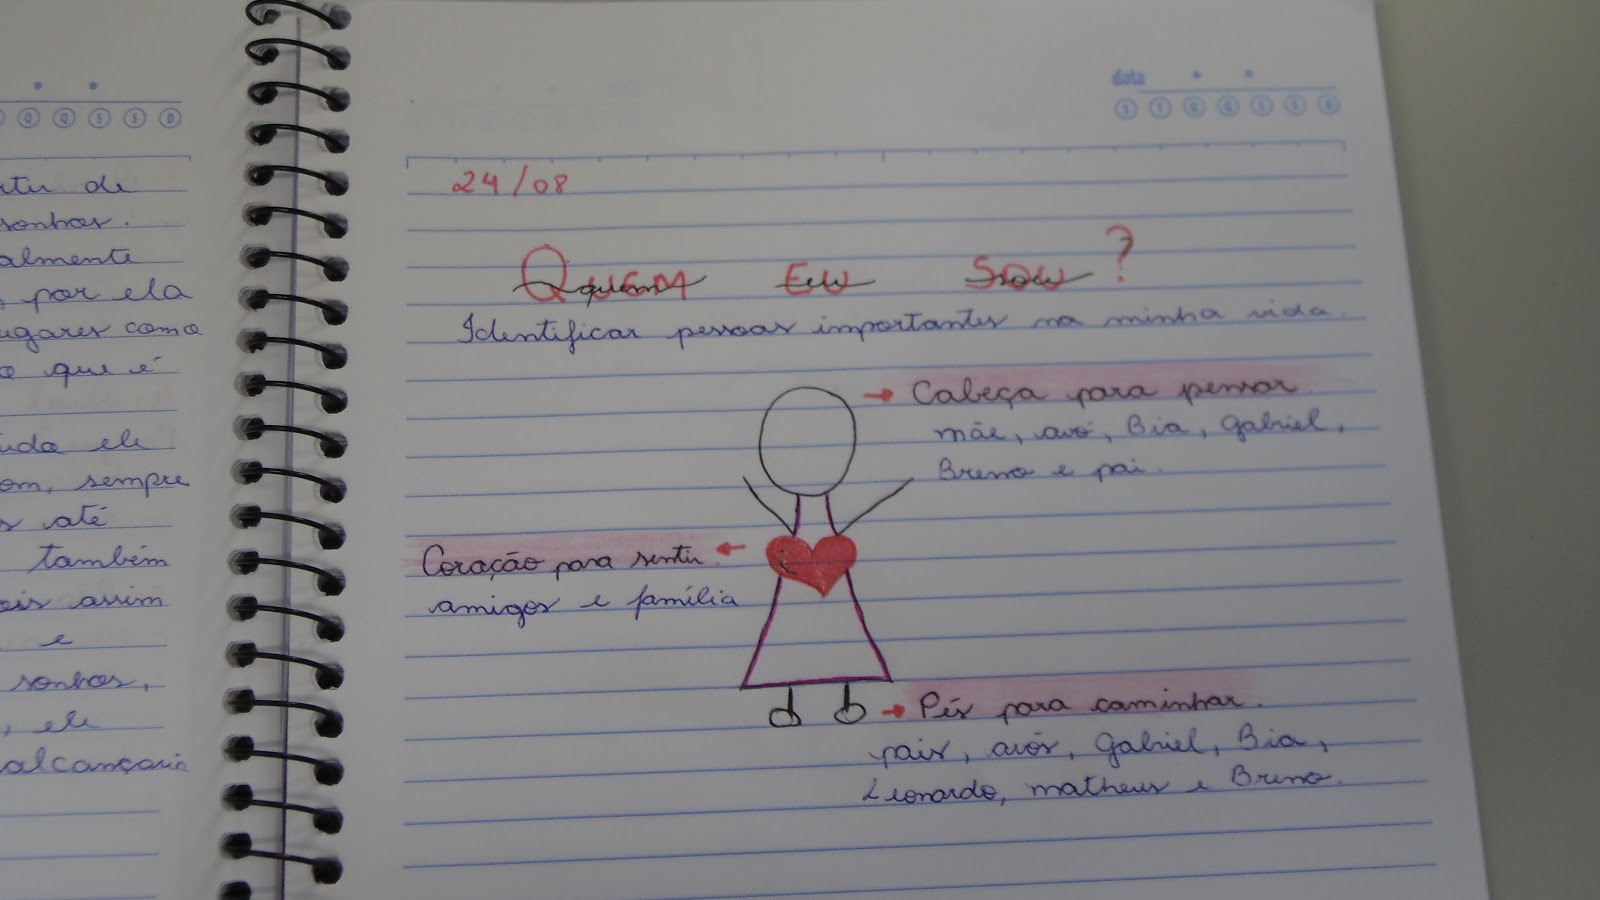 Q Q S S D
de
sonhos.
almente
por ela
lugares como
o que é
ele
om, sempre
até
também
assim
e
sonhos,
, ele
alcançaria
data
S T Q Q S S D
24/08
Quem eu sou?
Identificar pessoas importantes na minha vida.
→ Cabeça para pensar
mãe, avó, Bia, Gabriel,
Breno e pai.
Coração para sentir. ←
amigos e família
→ Pés para caminhar.
pais, avós, Gabriel, Bia,
Leonardo, matheus e Breno.